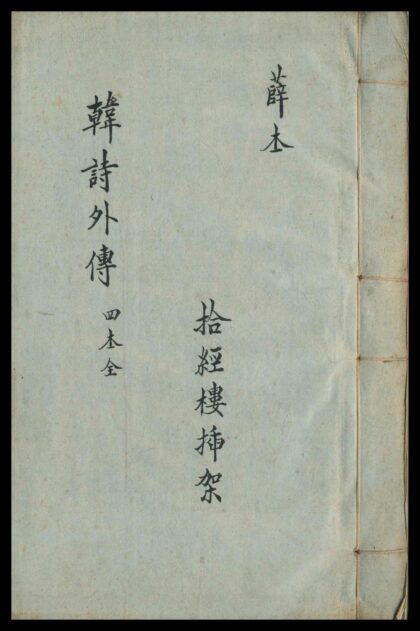 薛本
拾經樓插架
韓詩外傳 四本全